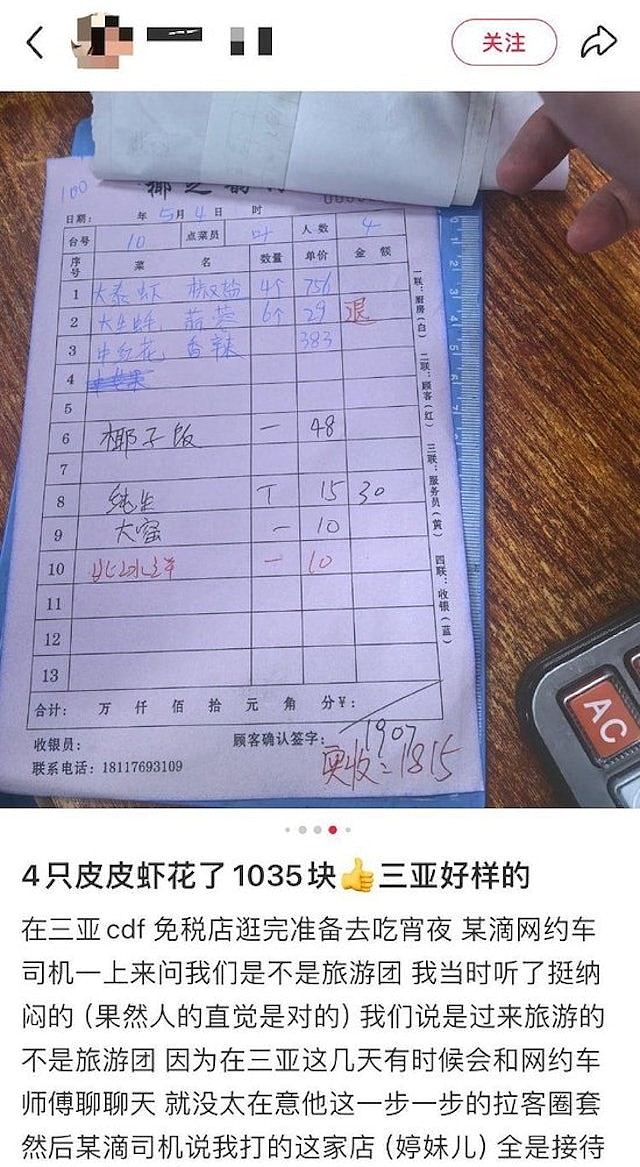 关注
100
日期: 年 5 月 4 日 时
台号 10 点菜员 叶 人数 4
序号 菜 名 数量 单价 金 额
1 大泰虾 椒盐 4个 756
2 大生蚝 蒜蓉 6个 29 退
3 中红花 香辣 383
4
5
6 椰子饭 一 48
7
8 纯生 T 15 30
9 大窑 一 10
10 北冰洋 一 10
11
12
13
合计: 万 仟 佰 拾 元 角 分¥:
1907
收银员: 顾客确认签字:
实收:1815
联系电话:18117693109
一联:厨房(白)
二联:顾客(红)
三联:服务员(黄)
四联:收银(蓝)
AC
4只皮皮虾花了1035块👍三亚好样的
在三亚cdf 免税店逛完准备去吃宵夜 某滴网约车
司机一上来问我们是不是旅游团 我当时听了挺纳
闷的(果然人的直觉是对的)我们说是过来旅游的
不是旅游团 因为在三亚这几天有时候会和网约车
师傅聊聊天 就没太在意他这一步一步的拉客圈套
然后某滴司机说我打的这家店(婷妹儿)全是接待